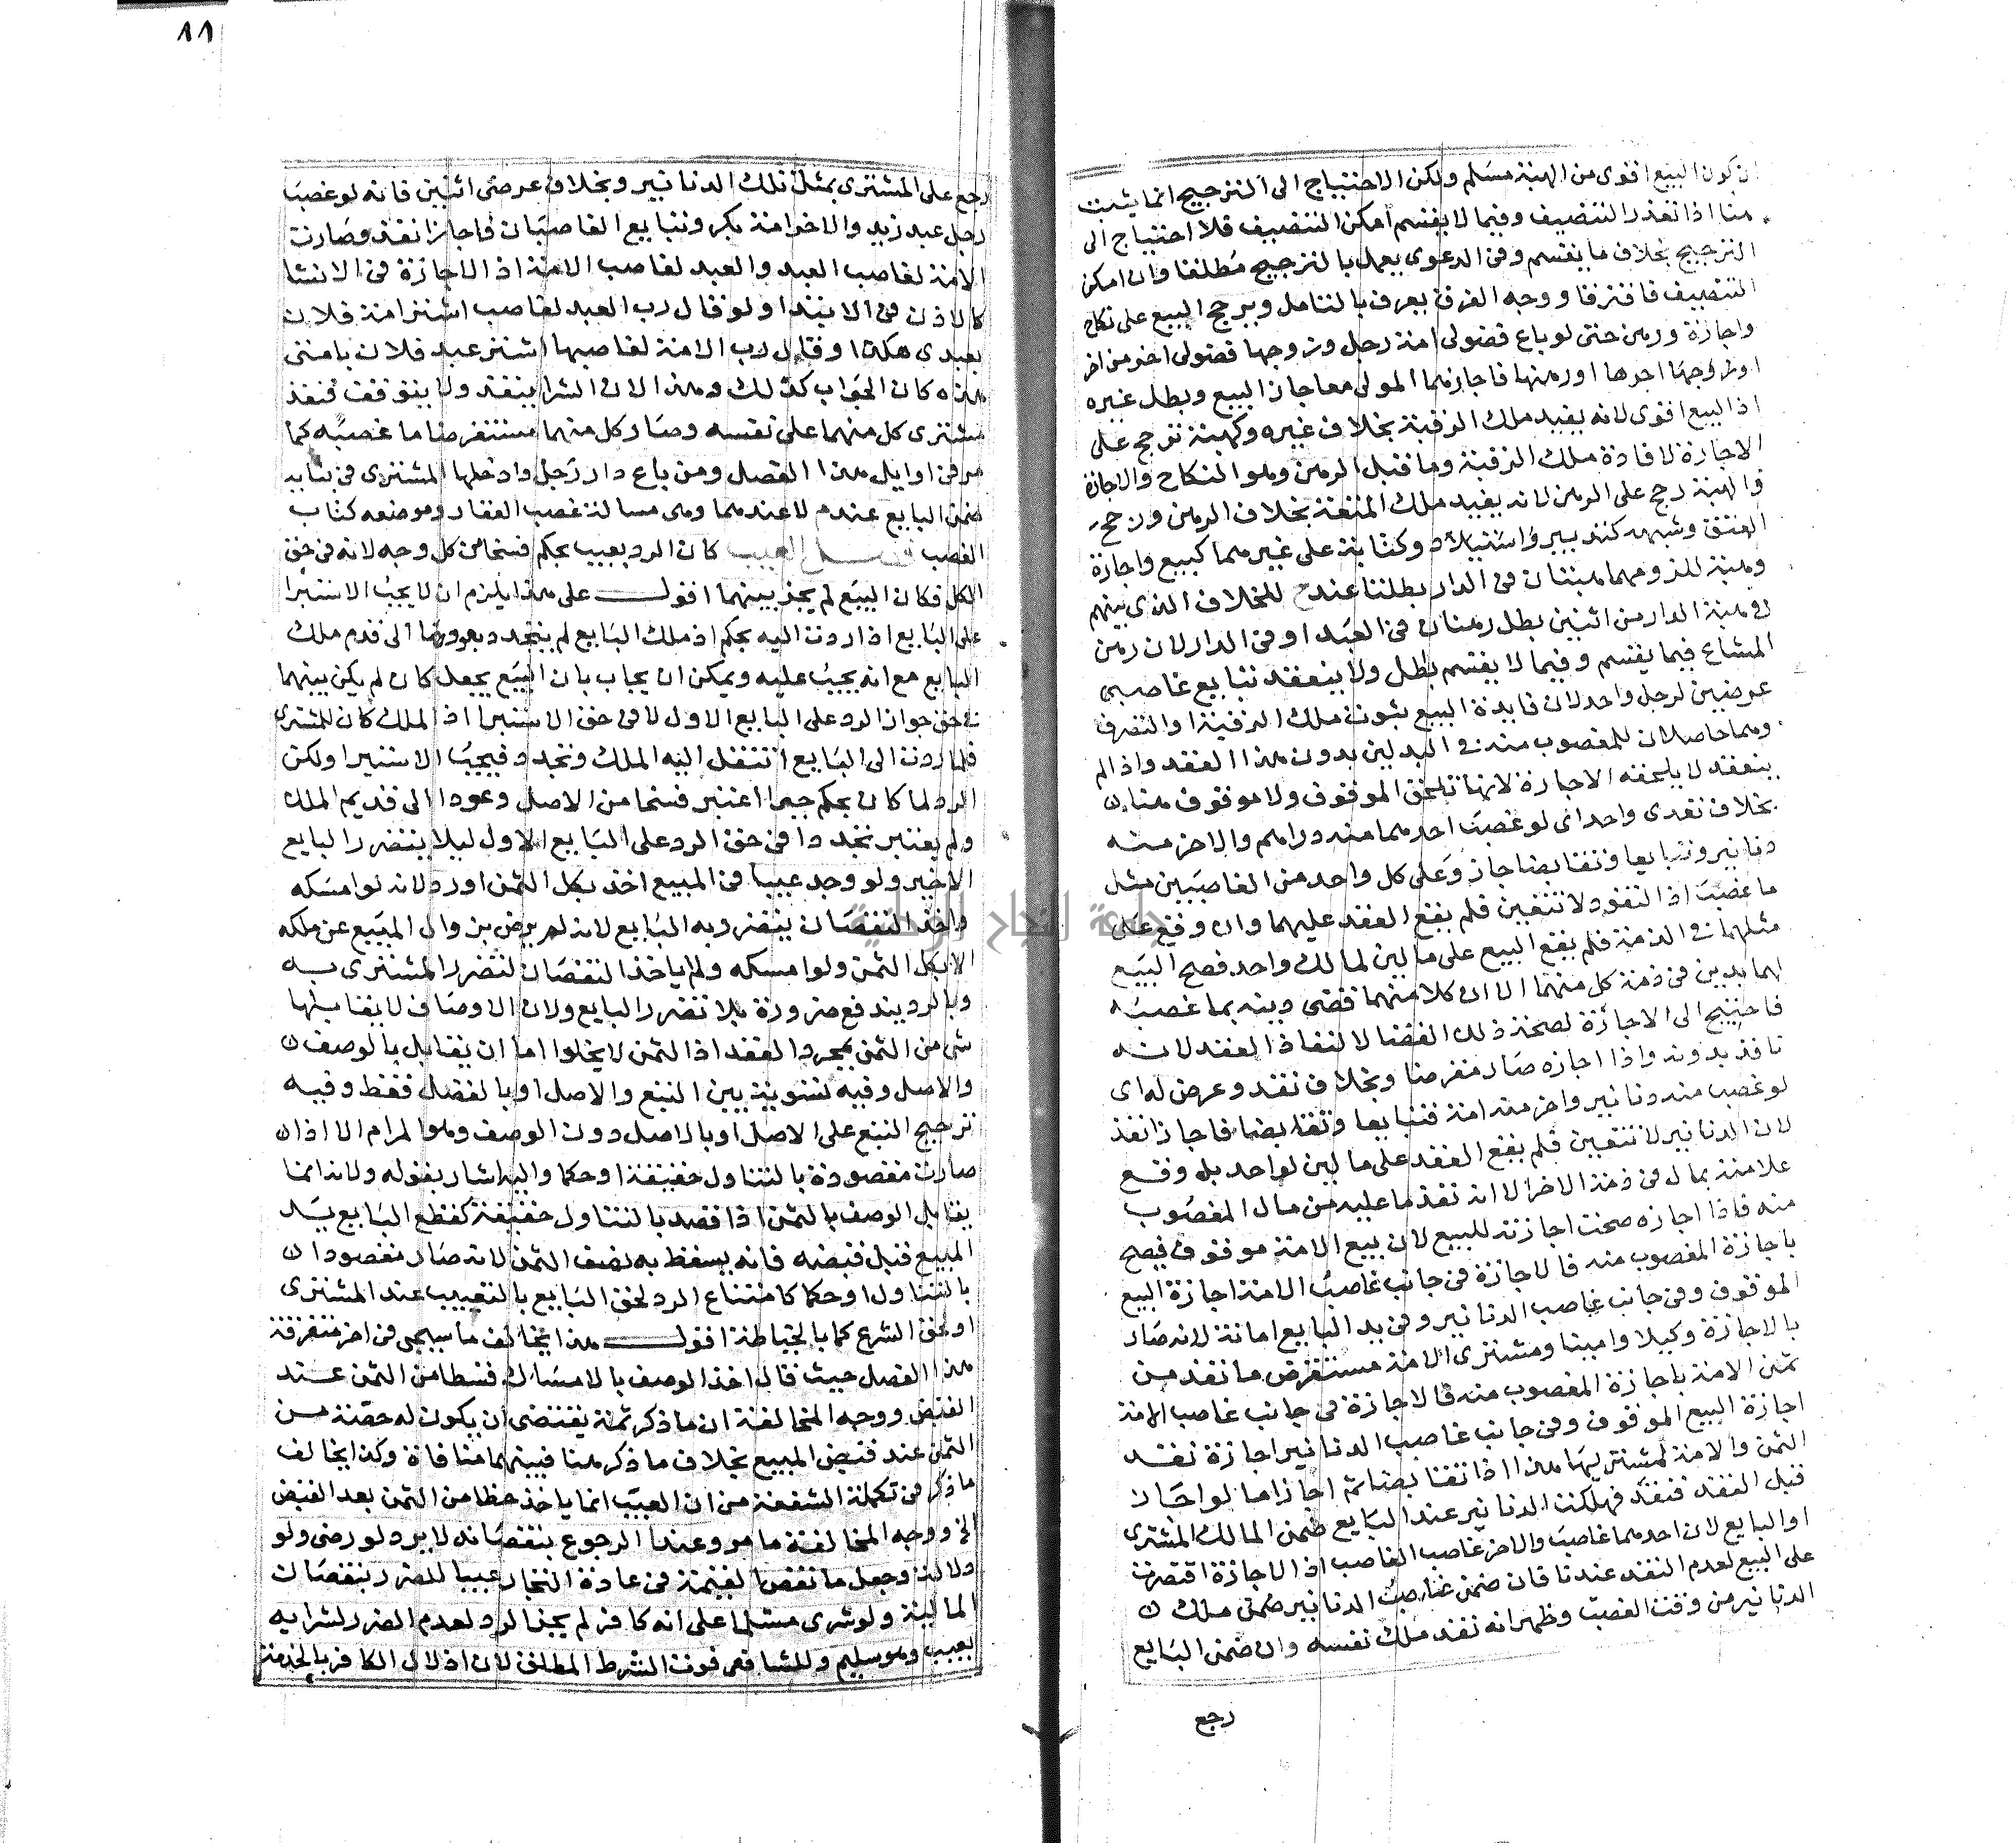 ان كون البيع اقوى من الهبة مسلم ولكن الاحتياج الى الترجيح انما يثبت
هنا اذا تعذر التنصيف وفيما لا يقسم امكن التنصيف فلا احتياج الى
الترجيح بخلاف ما يقسم وفى الدعوى يعمل بالترجيح مطلقا وان امكن
التنصيف فافترقا ووجه الفرق يعرف بالتامل ويرجح البيع على نكاح
واجازة ورهن حتى لو باع فضولى امة رجل وزوجها فضولى اخر من اخر
او زوجها اجرها او رهنها فاجازهما المولى معا جاز البيع وبطل غيره
اذ البيع اقوى لانه يفيد ملك الرقبة بخلاف غيره وكهبة ترجح على
الاجازة لافادة ملك الرقبة وما قبل الرهن وهو النكاح والاجازة
والهبة رجح على الرهن لانه يفيد ملك المنفعة بخلاف الرهن ورجح
العتق وشبهه كتدبير واستيلاد وكتابة على غيرهما كبيع واجازة
وهبة للزومهما هبتان فى الدار بطلتا عنده للخلاف الذى بينهم
فى هبة الدار من اثنين بطل رهنان فى العبد او فى الدار لان رهن
المشاع فيما يقسم وفيما لا يقسم بطل ولا ينعقد تبايع غاصبى
عرضين لرجل واحد لان فايدة البيع ثبوت ملك الرقبة والتصرف
وهما حاصلان للمغصوب منه فى البدلين بدون هذا العقد واذا لم
ينعقد لا يلحقه الاجازة لانها تلحق الموقوف ولا موقوف هنا
بخلاف نقدى واحد اى لو غصب احدهما منه دراهم والاخر منه
دنانير وتبايعا وتقابضا جاز وعلى كل واحد من الغاصبين مثل
ما غصب اذ النقود لا تتعين فلم يقع العقد عليهما وان وقع على
مثلهما فى الذمة فلم يقع البيع على مالين لمالك واحد فصح البيع
لهما بدين فى ذمة كل منهما الا ان كلا منهما قضى دينه بما غصبه
فاحتيج الى الاجازة لصحة ذلك القضا لا لنفاذ العقد لانه
نافذ بدونه واذا اجازه صار مقرضا وبخلاف نقد وعرض له اى
لو غصب منه دنانير واخر منه امة فتبايعا وتقابضا فاجاز نفذ
لان الدنانير لا تتعين فلم يقع العقد على مالين لواحد بل وقع
علامة بمال فى ذمة الاخر الا انه نقد ما عليه من مال المغصوب
منه فاذا اجازه صحت اجازته للبيع لان بيع الامة موقوف فيصح
باجازة المغصوب منه فالاجازة فى جانب غاصب الامة اجازة البيع
الموقوف وفى جانب غاصب الدنانير وفى يد البايع امانة لانه صار
بالاجازة وكيلا وامينا ومشترى الامة مستقرض ما نقد من
ثمن الامة باجازة المغصوب منه فالاجازة فى جانب غاصب الامة
اجازة البيع الموقوف وفى جانب غاصب الدنانير اجازة نقد
الثمن والامة لمشتريها هذا اذا تقابضا ثم اجازاها لو اجاز
قبل النقد فنقد فهلكت الدنانير عند البايع ضمن المالك المشترى
او البايع لان احدهما غاصب والاخر غاصب الغاصب اذ الاجازة اقتصرت
على البيع لعدم النقد عندنا فان ضمن غاصب الدنانير ضمن ملك
الدنانير من وقت الغصب وظهر انه نقد ملك نفسه وان ضمن البايع
رجع
٨٨
رجع على المشترى بمثل تلك الدنانير وبخلاف عرضى اثنين فانه لو غصب
رجل عبد زيد والاخر امة بكر وتبايع الغاصبان فاجازا نفذ وصارت
الامة لغاصب العبد والعبد لغاصب الامة اذ الاجازة فى الانتها
كالاذن فى الابتدا ولو قال رب العبد لغاصب اشتر امة فلان
بعبدى هكذا وقال رب الامة لغاصبها اشتر عبد فلان بامتى
هذه كان الجواب كذلك وهذا لان الشرا ينفذ ولا يتوقف فنفذ
مشترى كل منهما على نفسه وصار كل منهما مستقرضا ما غصبه كما
مر فى اوايل هذا الفصل ومن باع دار رجل وادخلها المشترى فى بنايه
ضمن البايع عندم لا عندهما وهى مسالة غصب العقار وموضعه كتاب
الغصب فصل العيب كان الرد بعيب بحكم فسخا من كل وجه لانه فى حق
الكل فكان البيع لم يجز بينهما اقول على هذا يلزم ان لا يجب الاستبرا
على البايع اذا ردت اليه بحكم اذ ملك البايع لم يتجدد بعودها الى قدم ملك
البايع مع انه يجب عليه ويمكن ان يجاب بان البيع يجعل كان لم يكن بينهما
فى حق جواز الرد على البايع الاول لا فى حق الاستبرا اذ الملك كان للمشترى
فلما ردت الى البايع انتقل اليه الملك وتجدد فيجب الاستبرا ولكن
الرد لما كان بحكم جبرا اعتبر فسخا من الاصل وعودا الى قديم الملك
ولم يعتبر تجددا فى حق الرد على البايع الاول ليلا يتضرر البايع
الاخير ولو وجد عيبا فى المبيع اخذ بكل الثمن او رد لانه لو امسكه
واخذ النقصان يتضرر به البايع لانه لم يرض بزوال المبيع عن ملكه
الا بكل الثمن ولو امسكه ولم ياخذ النقصان لتضرر المشترى به
وبالرد يندفع ضرورة بلا تضرر البايع ولان الاوصاف لا يقابلها
شى من الثمن بمجرد العقد اذ الثمن لا يخلوا اما ان يقابل بالوصف
والاصل وفيه تسوية بين التبع والاصل او بالفضل فقط وفيه
ترجيح التبع على الاصل او بالاصل دون الوصف وهو المرام الا اذا
صارت مقصودة بالتناول حقيقة او حكما واليه اشار بقوله ولانه انما
يقابل الوصف بالثمن اذا قصد بالتناول حقيقة كقطع البايع يد
المبيع قبل قبضه فانه يسقط به نصف الثمن لانه صار مقصودا
بالتناول او حكما كامتناع الرد لحق البايع بالتعييب عند المشترى
او لحق الشرع كما بالخياطة اقول هذا يخالف ما سيجى فى اخر متفرقة
هذا الفصل حيث قال اخذ الوصف بالامساك قسطا من الثمن عند
القبض ووجه المخالفة ان ما ذكر ثمة يقتضى ان يكون له حصة من
الثمن عند قبض المبيع بخلاف ما ذكر هنا فبينهما منافاة وكذا يخالف
ما ذكر فى تكملة الشفعة من ان العيب انما ياخذ حظا من الثمن بعد القبض
الخ ووجه المخالفة ما مر وعندا الرجوع بنقصانه لا يرد لو رضى ولو
دلالة وجعل ما نقص القيمة فى عادة التجار عيبا للضرر بنقصان
المالية ولو شرى مسلما على انه كافر لم يجز الرد لعدم الضرر لشرايه
بعيب وهو سليم وللشافعى فوت الشرط المطلق لان اذلال الكافر بالخدمة